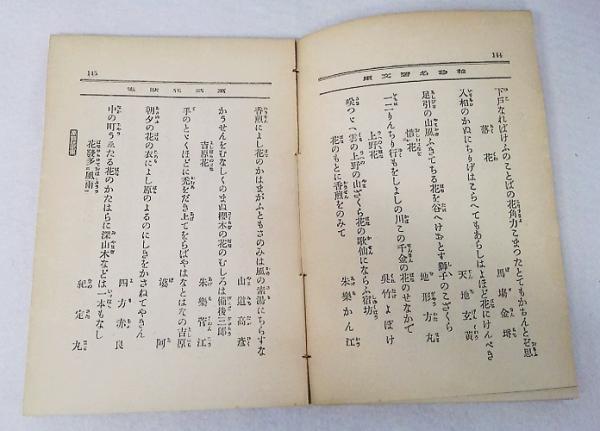 144
下戸なればけふのことばの花角力こまつたとてもかちんとぞ思
馬場金埒
落花
入相のかねにちりげはこらへてもあらしはよほど花にけんぺき
天地玄黄
足引の山風ふきてちる花を谷へけおとす獅子のこざくら
地形方丸
惜花
一二りんちり行もをしよしの川この千金の花のせなかて
呉竹よぼけ
上野花
咲つゞく雲の上野の山ざくら花の歌仙にならふ宿坊
朱樂かん江
花のもとに香煎をのみて
145
香煎によし花のかはまがふともさのみは風の素湯にちらすな
山道高彦
かうせんをむなしくのまぬ櫻木の花のむしろは備後三郎
朱樂菅江
吉原花
手のとゞくほどに禿をだき上てをらばやはなとはなの吉原
婆阿
朝夕の花の衣によし原のよるのにしきをかさねてやきん
四方赤良
中の町うゑたる花のかたはらに深山木などは一本もなし
紀定丸
花發多風雨